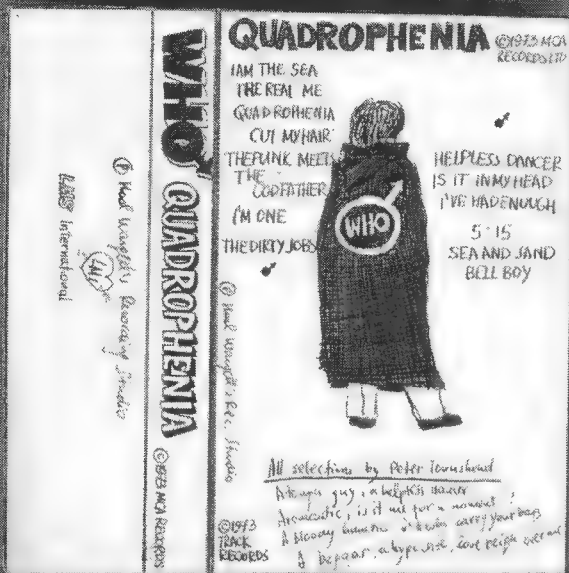 QUADROPHENIA
©1973 MCA
RECORDS LTD
I AM THE SEA
THE REAL ME
QUADROPHENIA
CUT MY HAIR
THE PUNK MEETS
THE
GODFATHER
I'M ONE
THE DIRTY JOBS
HELPLESS DANCER
IS IT IN MY HEAD
I'VE HAD ENOUGH
5·15
SEA AND SAND
BELL BOY
WHO
All selections by Peter Townshend
A tough guy, a helpless dancer
A romantic, is it me for a moment?
A bloody lunatic, I'll even carry your bags
A beggar, a hypocrite, love reign over me
©1973
TRACK
RECORDS
Ⓟ Waugh's Rec. Studio
WHO QUADROPHENIA
©1973 MCA RECORDS
Ⓟ Recording Studio
International